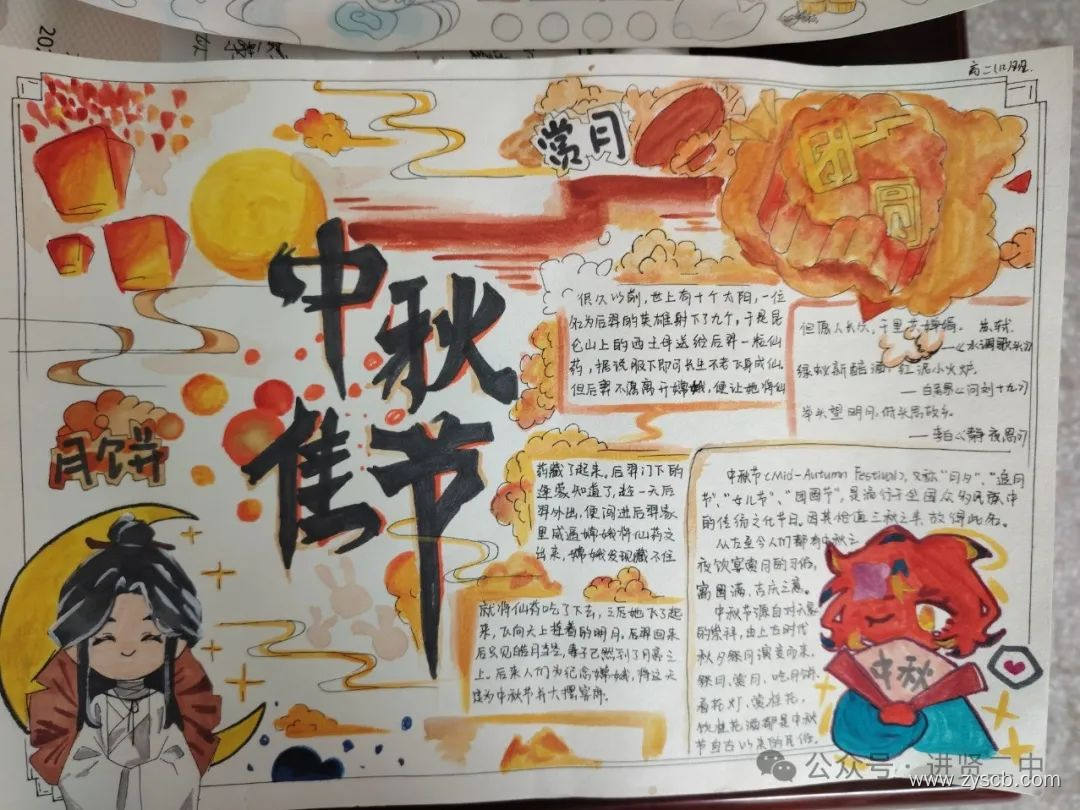 高二(1)班
赏月
团圆
中秋佳节
月饼
很久以前，世上有十个太阳，一位
名为后羿的英雄射下了九个，于是昆
仑山上的西王母送给后羿一粒仙
药，据说服下即可长生不老飞身成仙
但后羿不愿离开嫦娥，便让她将仙
药藏了起来。后羿门下的
逢蒙知道了，趁一天后
羿外出，便闯进后羿家
里威逼嫦娥将仙药交
出来，嫦娥发现藏不住
就将仙药吃了下去，之后她飞了起
来，飞向天上挂着的明月。后羿回来
后只见皓月
上。后来人们为纪念嫦娥，将这天
定为中秋节并大摆宴席。
但愿人长久，千里共婵娟。 苏轼
——《水调歌头》
绿蚁新醅酒，红泥小火炉。
——白居易《问刘十九》
举头望明月，低头思故乡。
——李白《静夜思》
中秋节(Mid-Autumn Festival)，又称“月夕”、“追月
节”、“女儿节”、“团圆节”，是流行于全国众多民族中
的传统文化节日。因其恰值三秋之半，故得此名。
从古至今人们都有中秋之
夜饮宴赏月的习俗，
寓圆满、吉庆之意。
中秋节源自对天象
的崇拜，由上古时代
秋夕祭月演变而来。
祭月、赏月、吃月饼、
看花灯、赏桂花、
饮桂花酒都是中秋
节自古以来的民俗。
中秋
公众号·进贤一中
www.zyscb.com